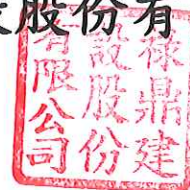 股份有
祿鼎建
設股份
有限公司